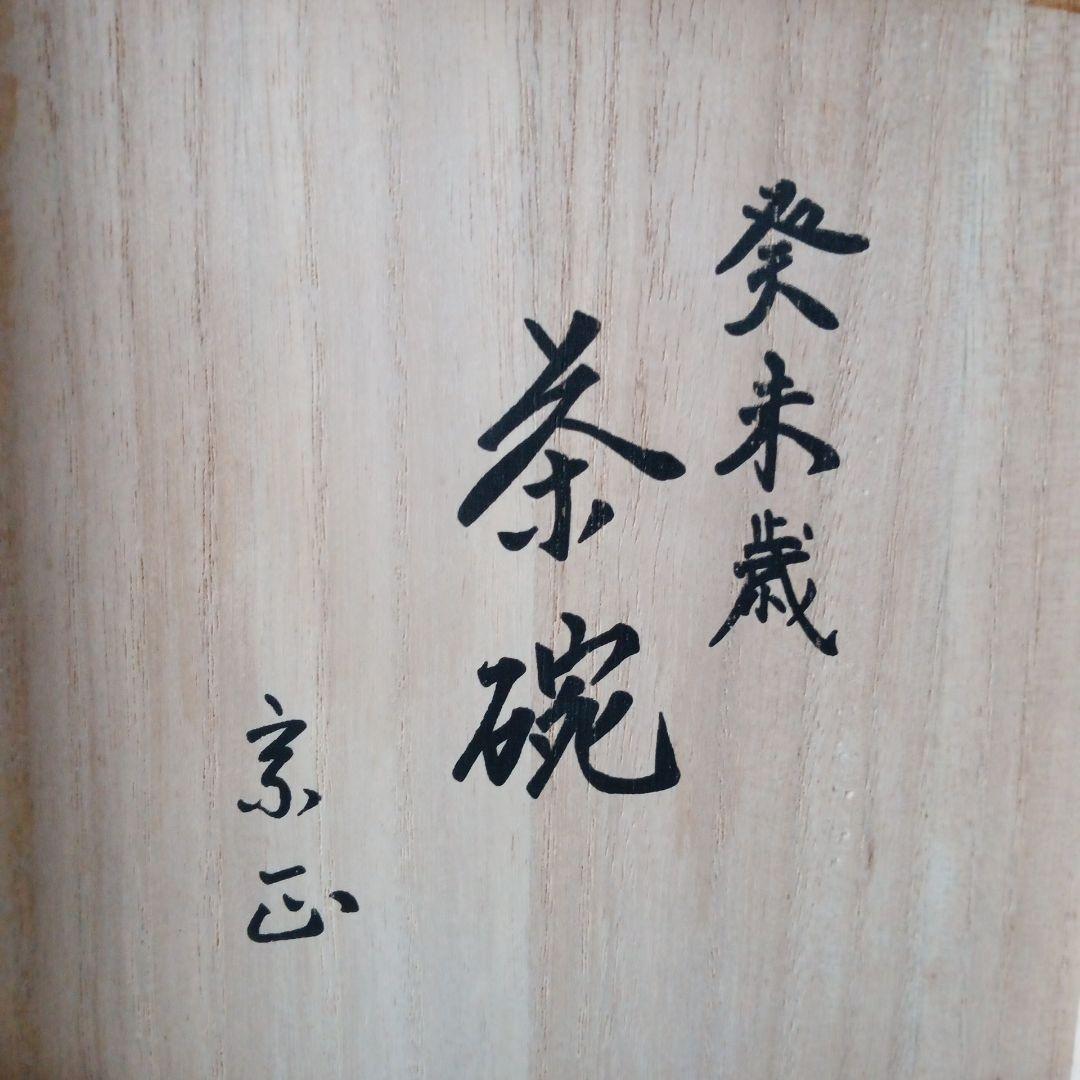 癸未歳
茶碗
宗正